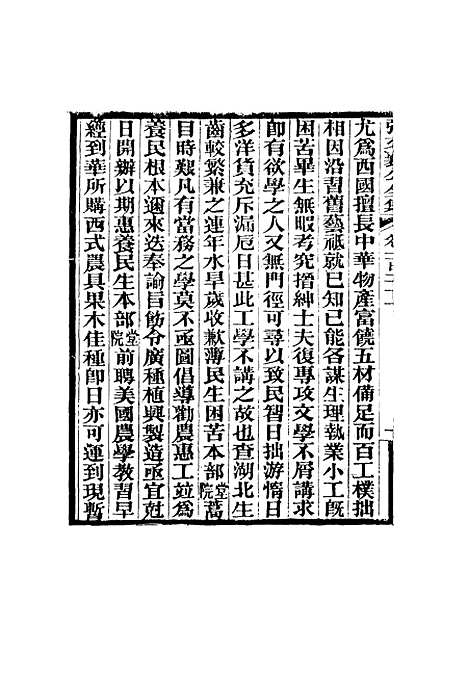 尤爲西國擅長中華物產富饒五材備足而百工樸拙
相因沿習舊藝祗就已知已能各謀生理執業小工既
困苦畢生無暇考究搢紳士夫復專攻文學不屑講求
卽有欲學之人又無門徑可尋以致民智日拙游惰日
多洋貨充斥漏巵日甚此工學不講之故也查湖北生
齒較繁兼之連年水旱歲收歉薄民生困苦本部堂院蒿
目時艱凡有當務之學莫不亟圖倡導勸農惠工竝爲
養民根本邇來迭奉諭旨飭令廣種植興製造亟宜尅
日開辦以期惠養民生本部堂院前聘美國農學教習早
經到華所購西式農具果木佳種卽日亦可運到現暫